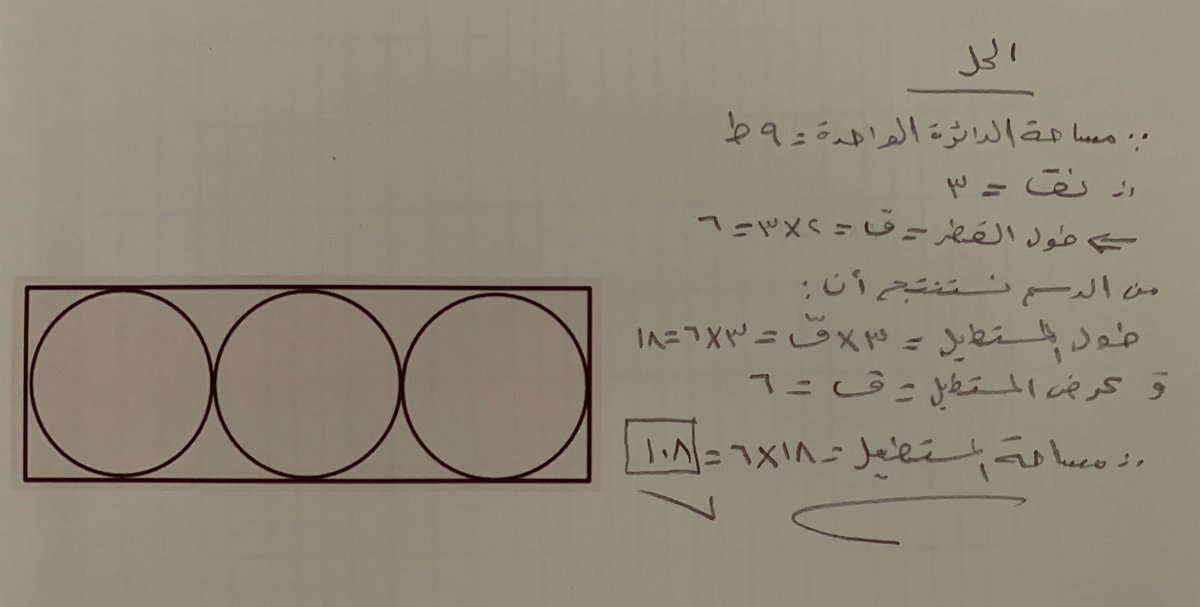 الحل
∵ مساحة الدائرة الواحدة = ٩ط
∴ نق = ٣
⇐ طول القطر = ق = ٢×٣ = ٦
من الرسم نستنتج أن:
طول المستطيل = ٣×ق = ٣×٦ = ١٨
و عرض المستطيل = ق = ٦
∴ مساحة المستطيل = ١٨×٦ = ١٠٨